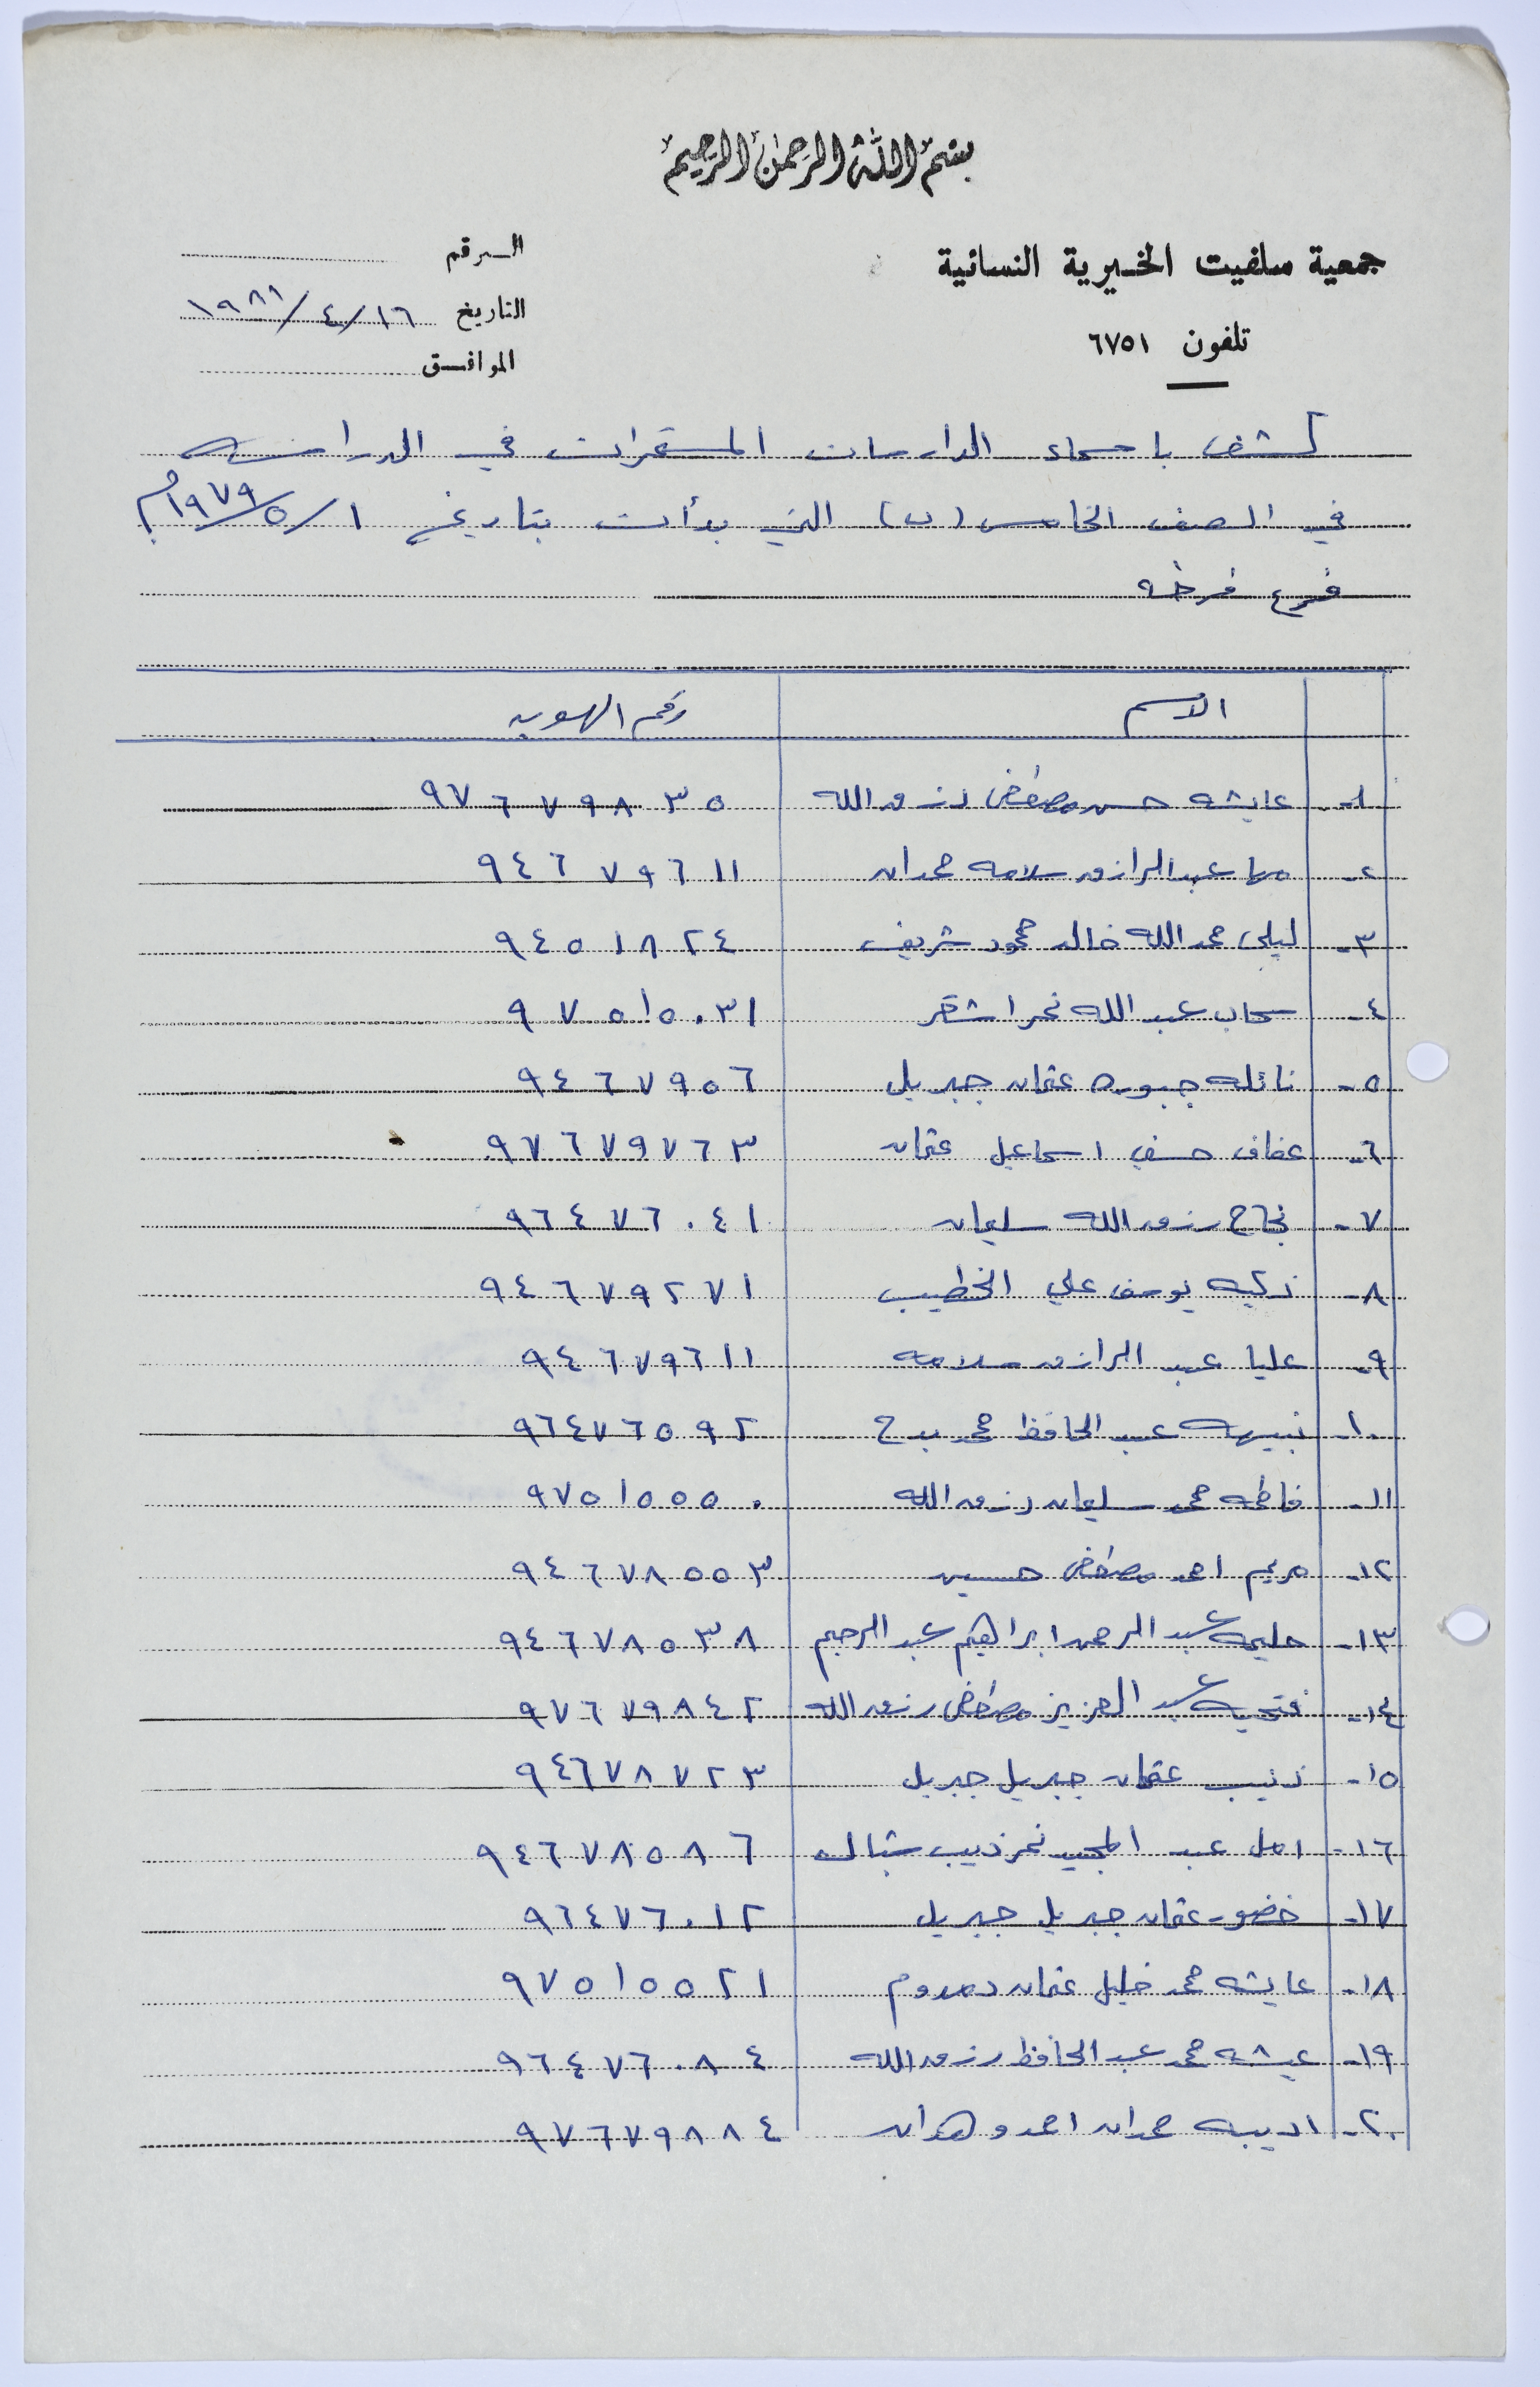 بسم الله الرحمن الرحيم
جمعية سلفيت الخيرية النسائية
تلفون ٦٧٥١
الرقم
التاريخ ١٦/٤/١٩٨١
الموافق
كشف باسماء الدارسات المستمرات في الدراسه
في الصف الخامس (ب) التي بدأت بتاريخ ١/٥/١٩٧٩م
فرع فرخه
الاسم رقم الهويه
١- عايشه حسن مصطفى رزق الله ٩٧٦٧٩٨٣٥
٢- مها عبد الرازق سلامه حمدان ٩٤٦٧٩٦١١
٣- ليلى حمد الله خالد محمود شريف ٩٤٥١٨٢٤
٤- سحاب عبد الله نمر اشقر ٩٧٥١٥٠٣١
٥- نائله جبوره عثمان جبريل ٩٤٦٧٩٥٦
٦- عفاف حسني اسماعيل عثمان ٩٧٦٧٩٧٦٣
٧- نجاح رزق الله سليمان ٩٦٤٧٦٠٤١
٨- زكيه يوسف علي الخطيب ٩٤٦٧٩٢٧١
٩- عليا عبد الرازق سلامه ٩٤٦٧٩٦١١
١٠- نبيهه عبد الحافظ محمد بدح ٩٦٤٧٦٥٩٢
١١- فاطمه محمد سليمان رزق الله ٩٧٥١٥٥٥٠
١٢- مريم احمد مصطفى حسين ٩٤٦٧٨٥٥٣
١٣- حليمه عبد الرحمن ابراهيم عبد الرحيم ٩٤٦٧٨٥٣٨
١٤- فتحيه عبد العزيز مصطفى رزق الله ٩٧٦٧٩٨٤٢
١٥- زينب عثمان جبريل جبريل ٩٤٦٧٨٧٢٣
١٦- امل عبد المجيد نمر ذيب ٩٤٦٧٨٥٨٦
١٧- عثمان جبريل جبريل ٩٦٤٧٦٠١٢
١٨- عايشه محمد خليل عثمان ٩٧٥١٥٥٢١
١٩- عيشه محمد عبد الحافظ رزق الله ٩٦٤٧٦٠٨٤
٢٠- اديبه حمدان احمد وهدان ٩٧٦٧٩٨٨٤